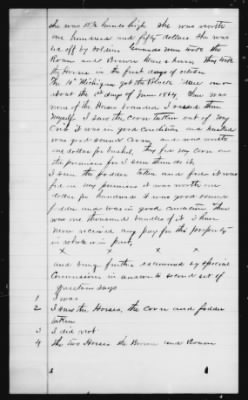 she was 15½ hands high. She was worth
one hundred and fifty dollars. She was
led off by soldiers. Yankee men took the
Roan and Brown Horses. They took
the Horses in the first days of
The 10" Michigan got the Black Mare on or
about the 1st days of June 1864. There was
none of the Horses branded. I raised them
myself. I saw the corn taken out of my
Crib. It was in good condition and husked
was good sound corn, and was worth
one dollar per bushel. They fed my corn on
the premises for I seen them do it.
I seen the fodder taken and feed it was
fed on my premises it was worth one
dollar per hundred. it was good sound
fodder and was in good condition. There
was one thousand bundles of it. I have
never received any pay for this property
in whole or in part,
x x x x
and being further examined by special
Commissioner in answer to second set of
questions says
1 I was
2 I saw the Horses, the corn and fodder
taken
3 I did not
4 The two Horses the Brown and Roan